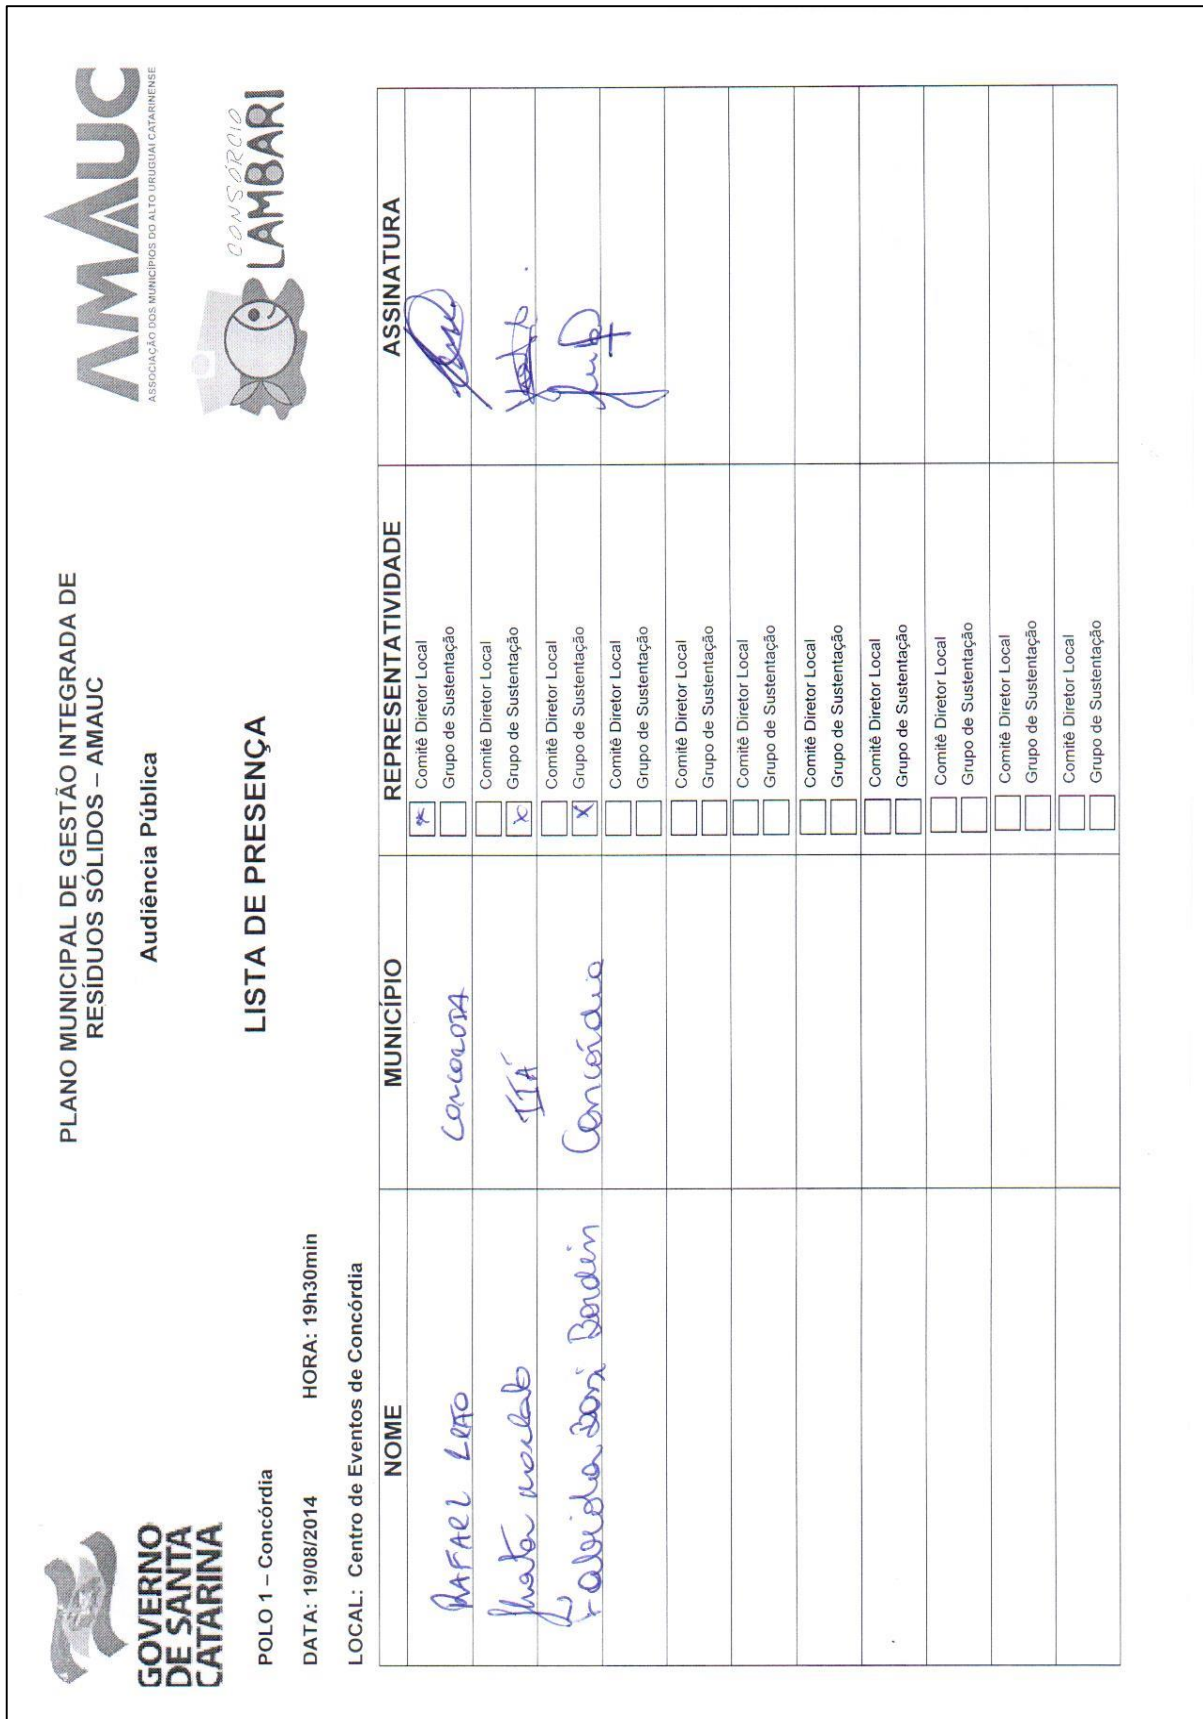 GOVERNO
DE SANTA
CATARINA
PLANO MUNICIPAL DE GESTÃO INTEGRADA DE
RESÍDUOS SÓLIDOS – AMAUC
Audiência Pública
LISTA DE PRESENÇA
AMAUC
ASSOCIAÇÃO DOS MUNICÍPIOS DO ALTO URUGUAI CATARINENSE
CONSÓRCIO
LAMBARI
POLO 1 – Concórdia
DATA: 19/08/2014 HORA: 19h30min
LOCAL: Centro de Eventos de Concórdia
NOME MUNICÍPIO REPRESENTATIVIDADE ASSINATURA
Comitê Diretor Local
RAFAEL LEÃO CONCORDIA x Grupo de Sustentação
Comitê Diretor Local
ITÁ x Grupo de Sustentação
Comitê Diretor Local
Fabiola Bordin Concórdia x Grupo de Sustentação
Comitê Diretor Local
Grupo de Sustentação
Comitê Diretor Local
Grupo de Sustentação
Comitê Diretor Local
Grupo de Sustentação
Comitê Diretor Local
Grupo de Sustentação
Comitê Diretor Local
Grupo de Sustentação
Comitê Diretor Local
Grupo de Sustentação
Comitê Diretor Local
Grupo de Sustentação
Comitê Diretor Local
Grupo de Sustentação